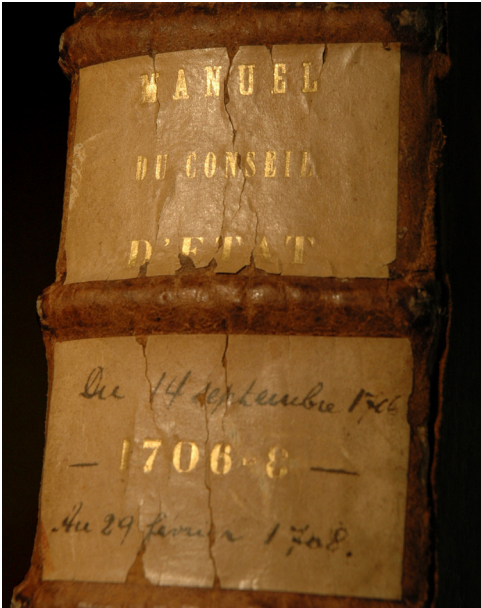 MANUEL
DU CONSEIL
D'ETAT
Du 14 septembre 1706
— 1706-8 —
Au 29 février 1708.